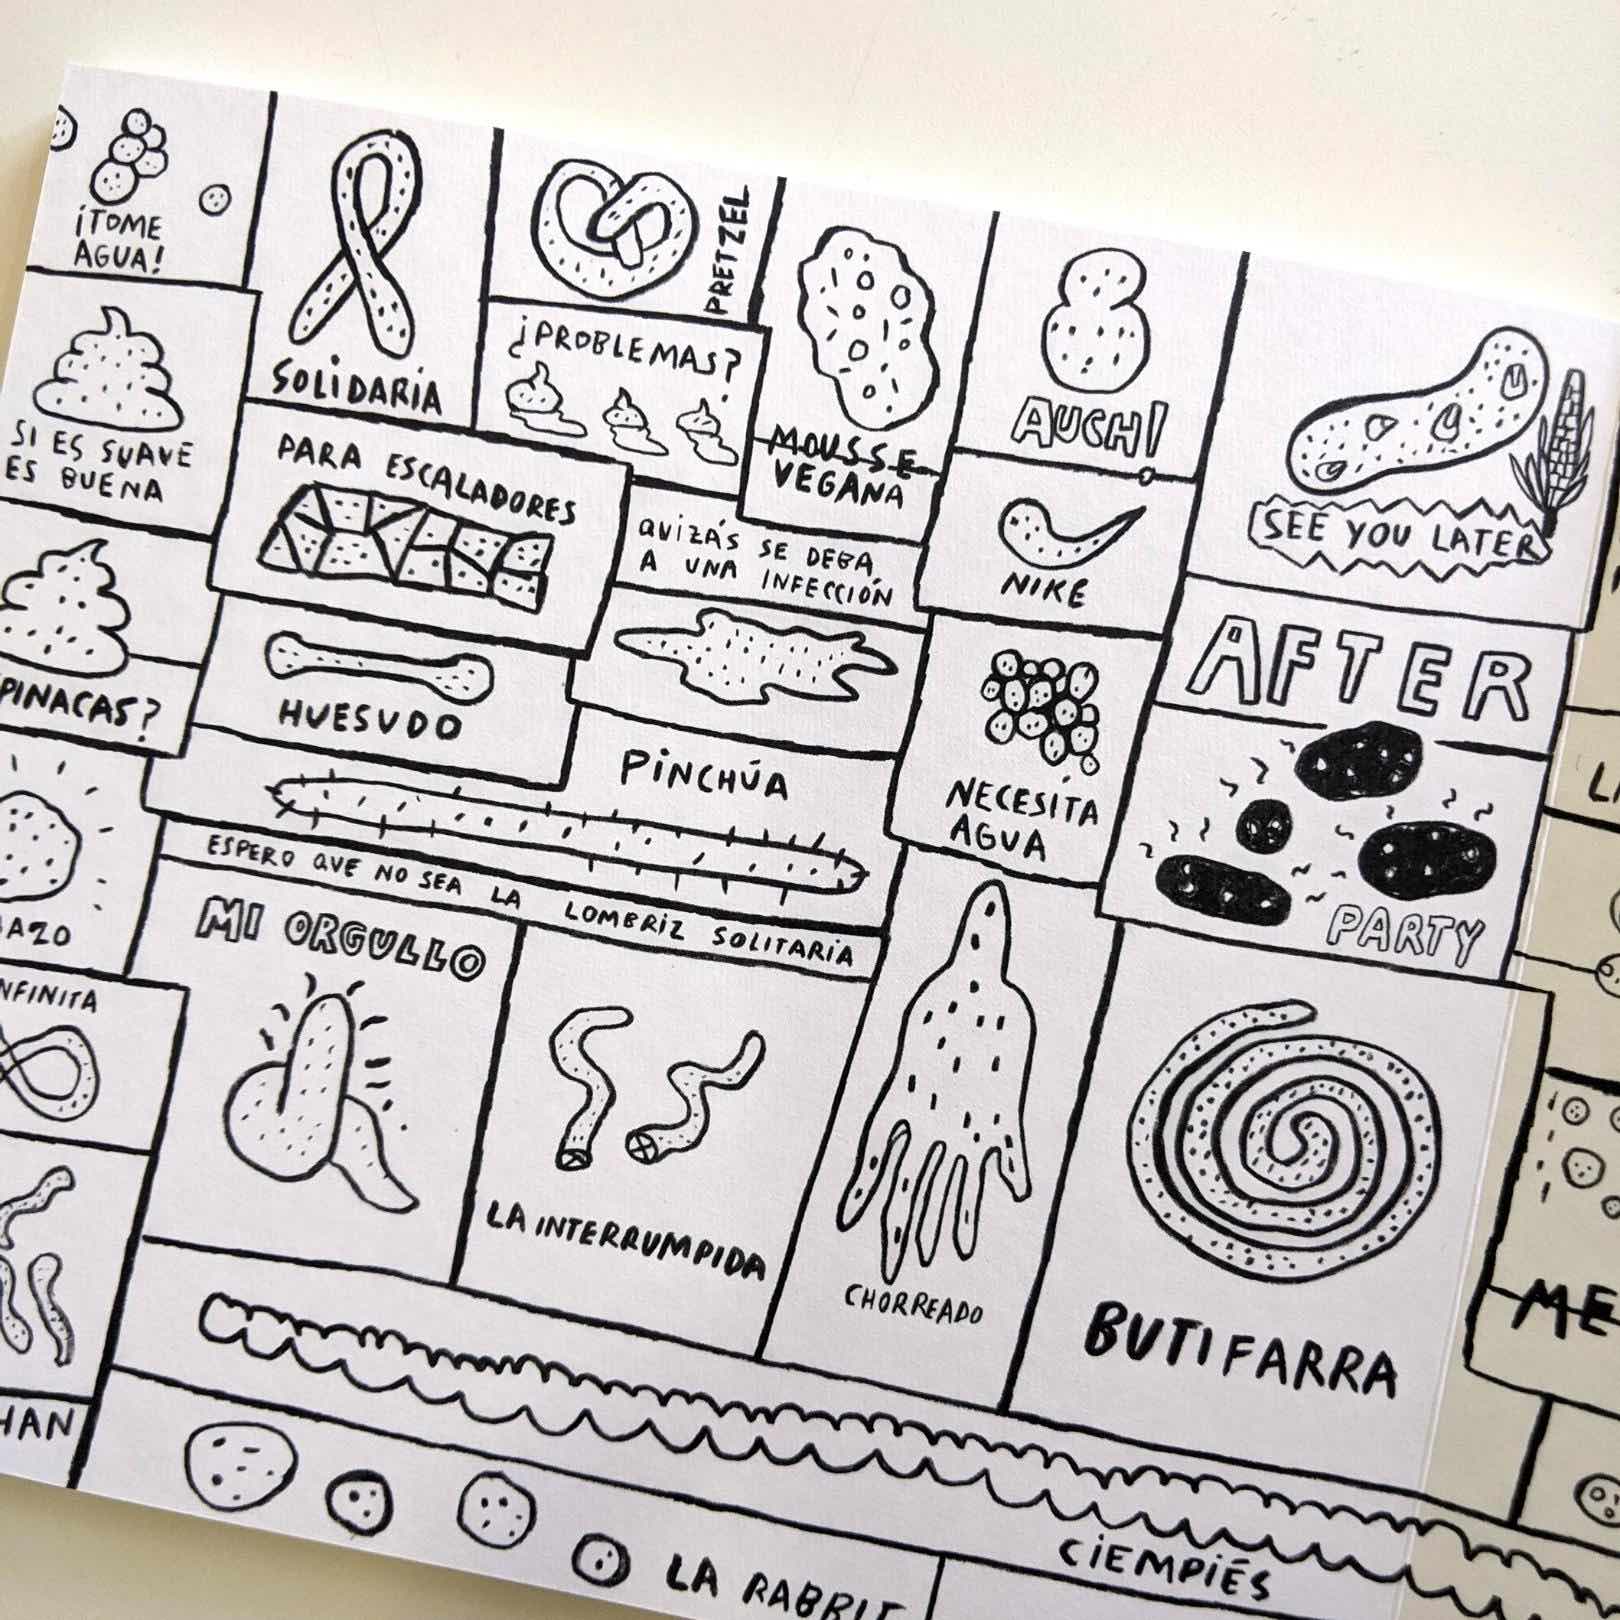 ¡TOME
AGUA!
SOLIDARIA
PRETZEL
¿PROBLEMAS?
MOUSSE
VEGANA
AUCH!
SEE YOU LATER
SI ES SUAVE
ES BUENA
PARA ESCALADORES
QUIZÁS SE DEBA
A UNA INFECCIÓN
NIKE
AFTER
PINACAS?
HUESUDO
PINCHÚA
NECESITA
AGUA
PARTY
AZO
ESPERO QUE NO SEA LA LOMBRIZ SOLITARIA
NFINITA
MI ORGULLO
LA INTERRUMPIDA
CHORREADO
BUTIFARRA
ME
HAN
CIEMPIÉS
LA RABBIT